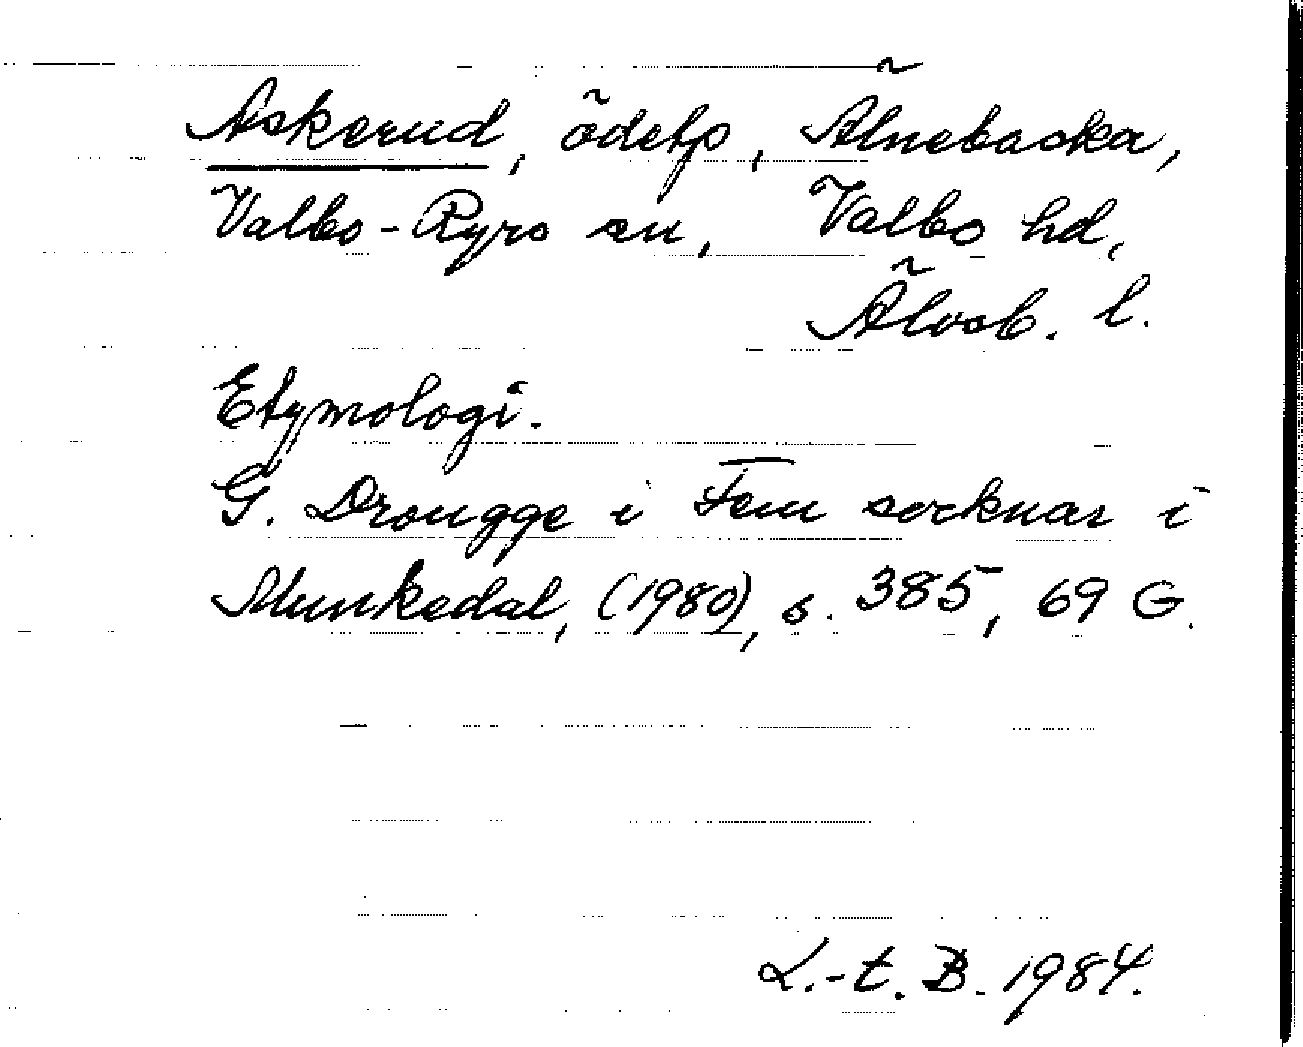 Askerud, ödetp, Älnebacka,
Valbo-Ryrs sn, Valbo hd,
Älvsb. l.
Etymologi.
G. Drougge i Fem socknar i
Munkedal, (1980), s. 385, 69 G.
L.-t. B. 1984.